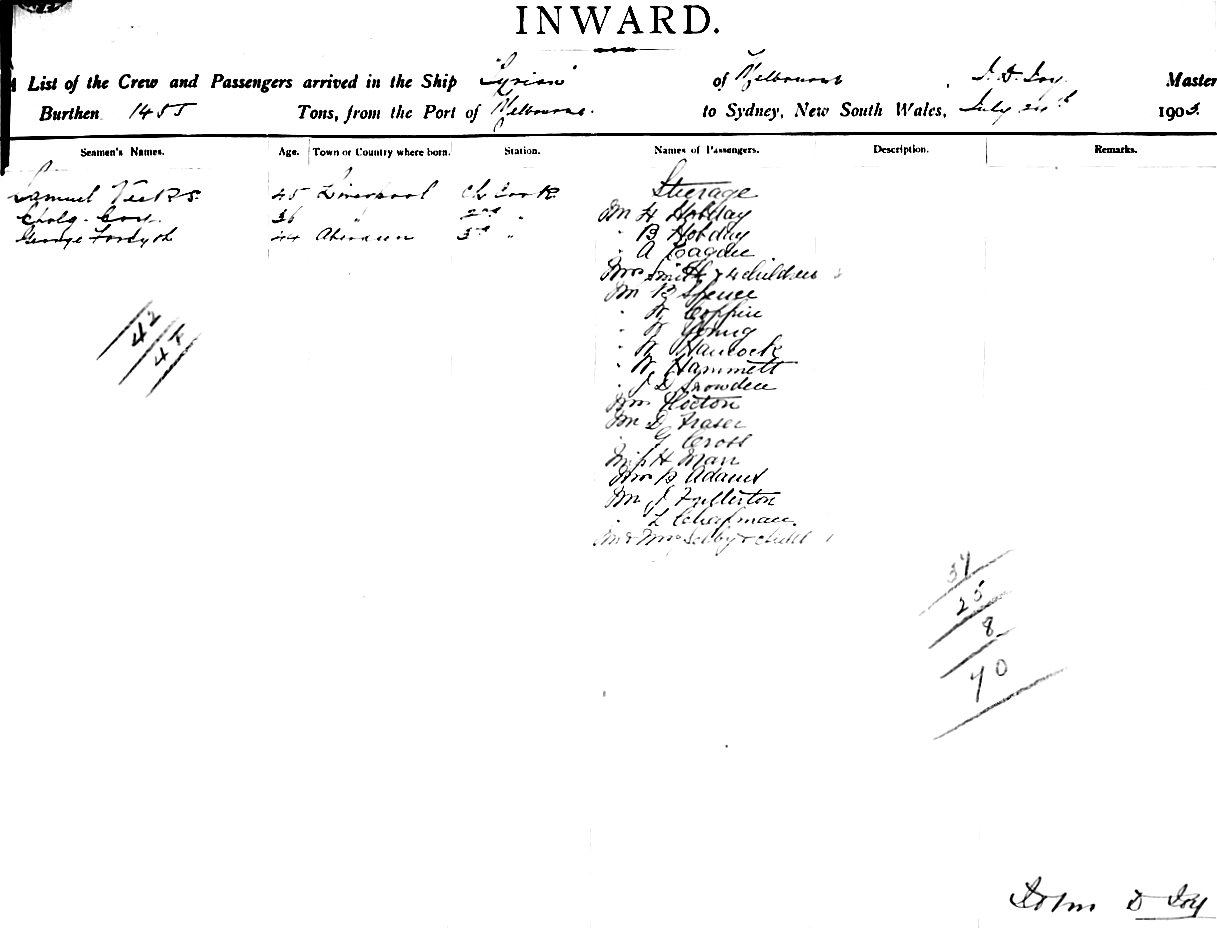 INWARD.
A List of the Crew and Passengers arrived in the Ship "Syrian" of Melbourne, J. D. Joy Master
Burthen 1455 Tons, from the Port of Melbourne. to Sydney, New South Wales, July 1903.
Seamen's Names. Age. Town or Country where born. Station. Names of Passengers. Description. Remarks.
Samuel 45 Liverpool Ch Cook Steerage
36 " 2nd " Mr H Hobday
George Forsyth 44 Aberdeen 3rd " " B Hobday
A
Mrs Smith & 4 children
Mr B Spence
" W Coppin
" W Young
" W Hancock
" W Hammett
" J D Snowden
Mrs
Mr D Fraser
" G Cross
Miss H Man
Mrs B Adams
Mr J Fullerton
" L Chapman
Mr & Mrs Selby & child
42
37
25
8
70
John D Joy